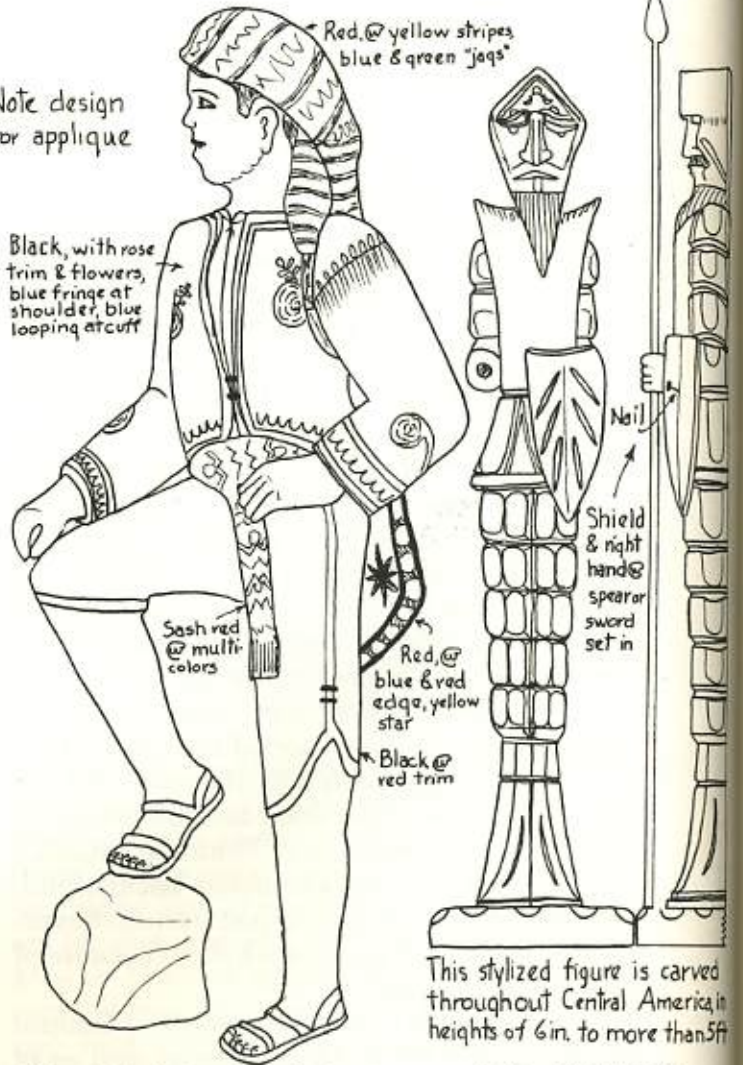 Red, @ yellow stripes,
blue & green "jags"
Note design
or applique
Black, with rose
trim & flowers,
blue fringe at
shoulder, blue
looping at cuff
Sash red
@ multi-
colors
Red, @
blue & red
edge, yellow
star
Black @
red trim
Nail
Shield
& right
hand @
spear or
sword
set in
This stylized figure is carved
throughout Central America, in
heights of 6in. to more than 5ft